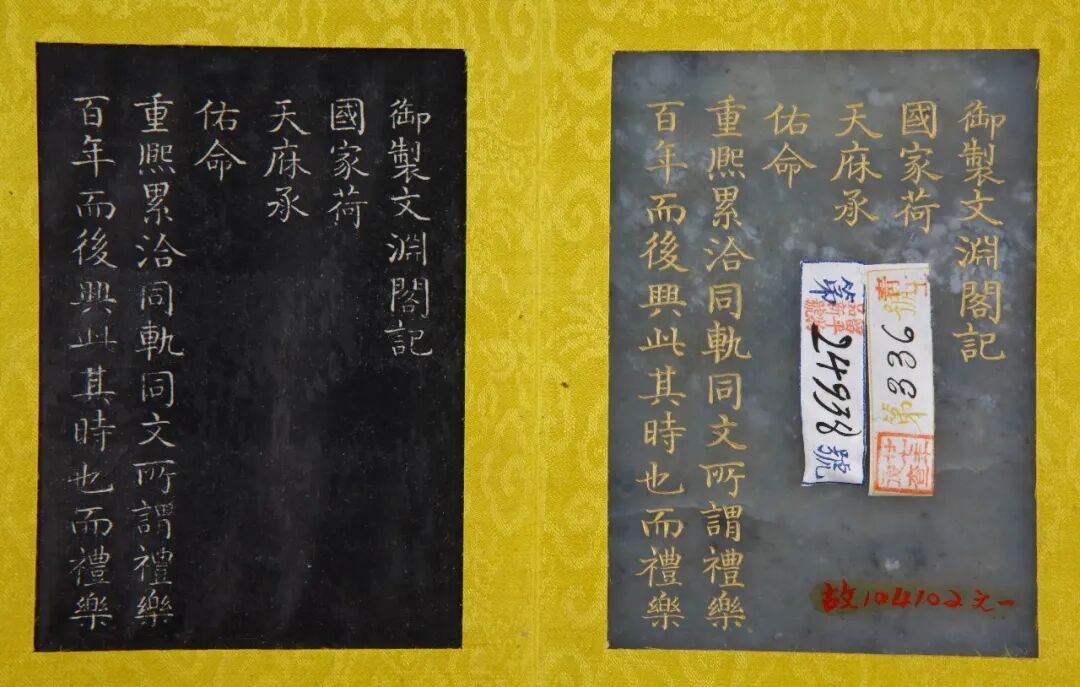 御製文淵閣記
國家荷
天庥承
佑命
重熙累洽同軌同文所謂禮樂
百年而後興此其時也而禮樂
御製文淵閣記
國家荷
天庥承
佑命
重熙累洽同軌同文所謂禮樂
百年而後興此其時也而禮樂
第24938號
故104102之一